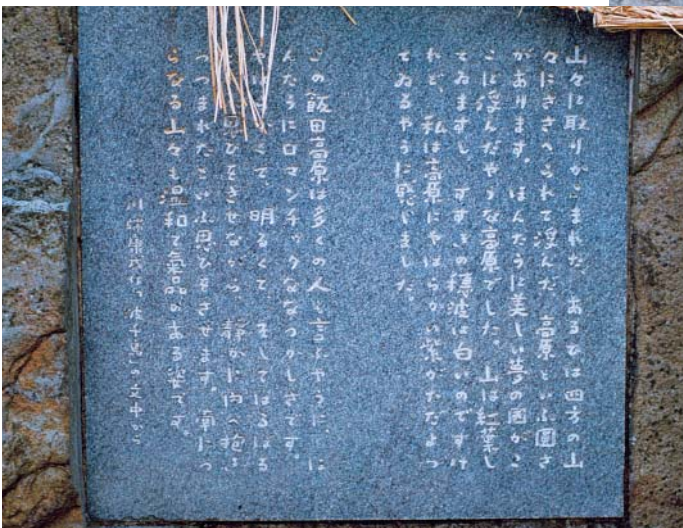 山々に取りかこまれた、あるひは四方の山
々にささへられて浮んだ、高原といふ圓さ
があります。ほんたうに美しい夢の國がこ
こに浮んだやうな高原でした。山は紅葉し
てゐますし、すすきの穂波は白いのですけ
れど、私は高原にやはらかい紫がただよつ
てゐるやうに感じました。
この飯田高原は多くの人も言ふやうに、ほ
んたうにロマンチックななつかしさです。
くて、明るくて、そしてはるばる
思ひをさせながら、静かに内へ抱き
つつまれたといふ思ひをさせます。南につ
らなる山々も温和で氣品のある姿です。
川端康成作「波千鳥」の文中から